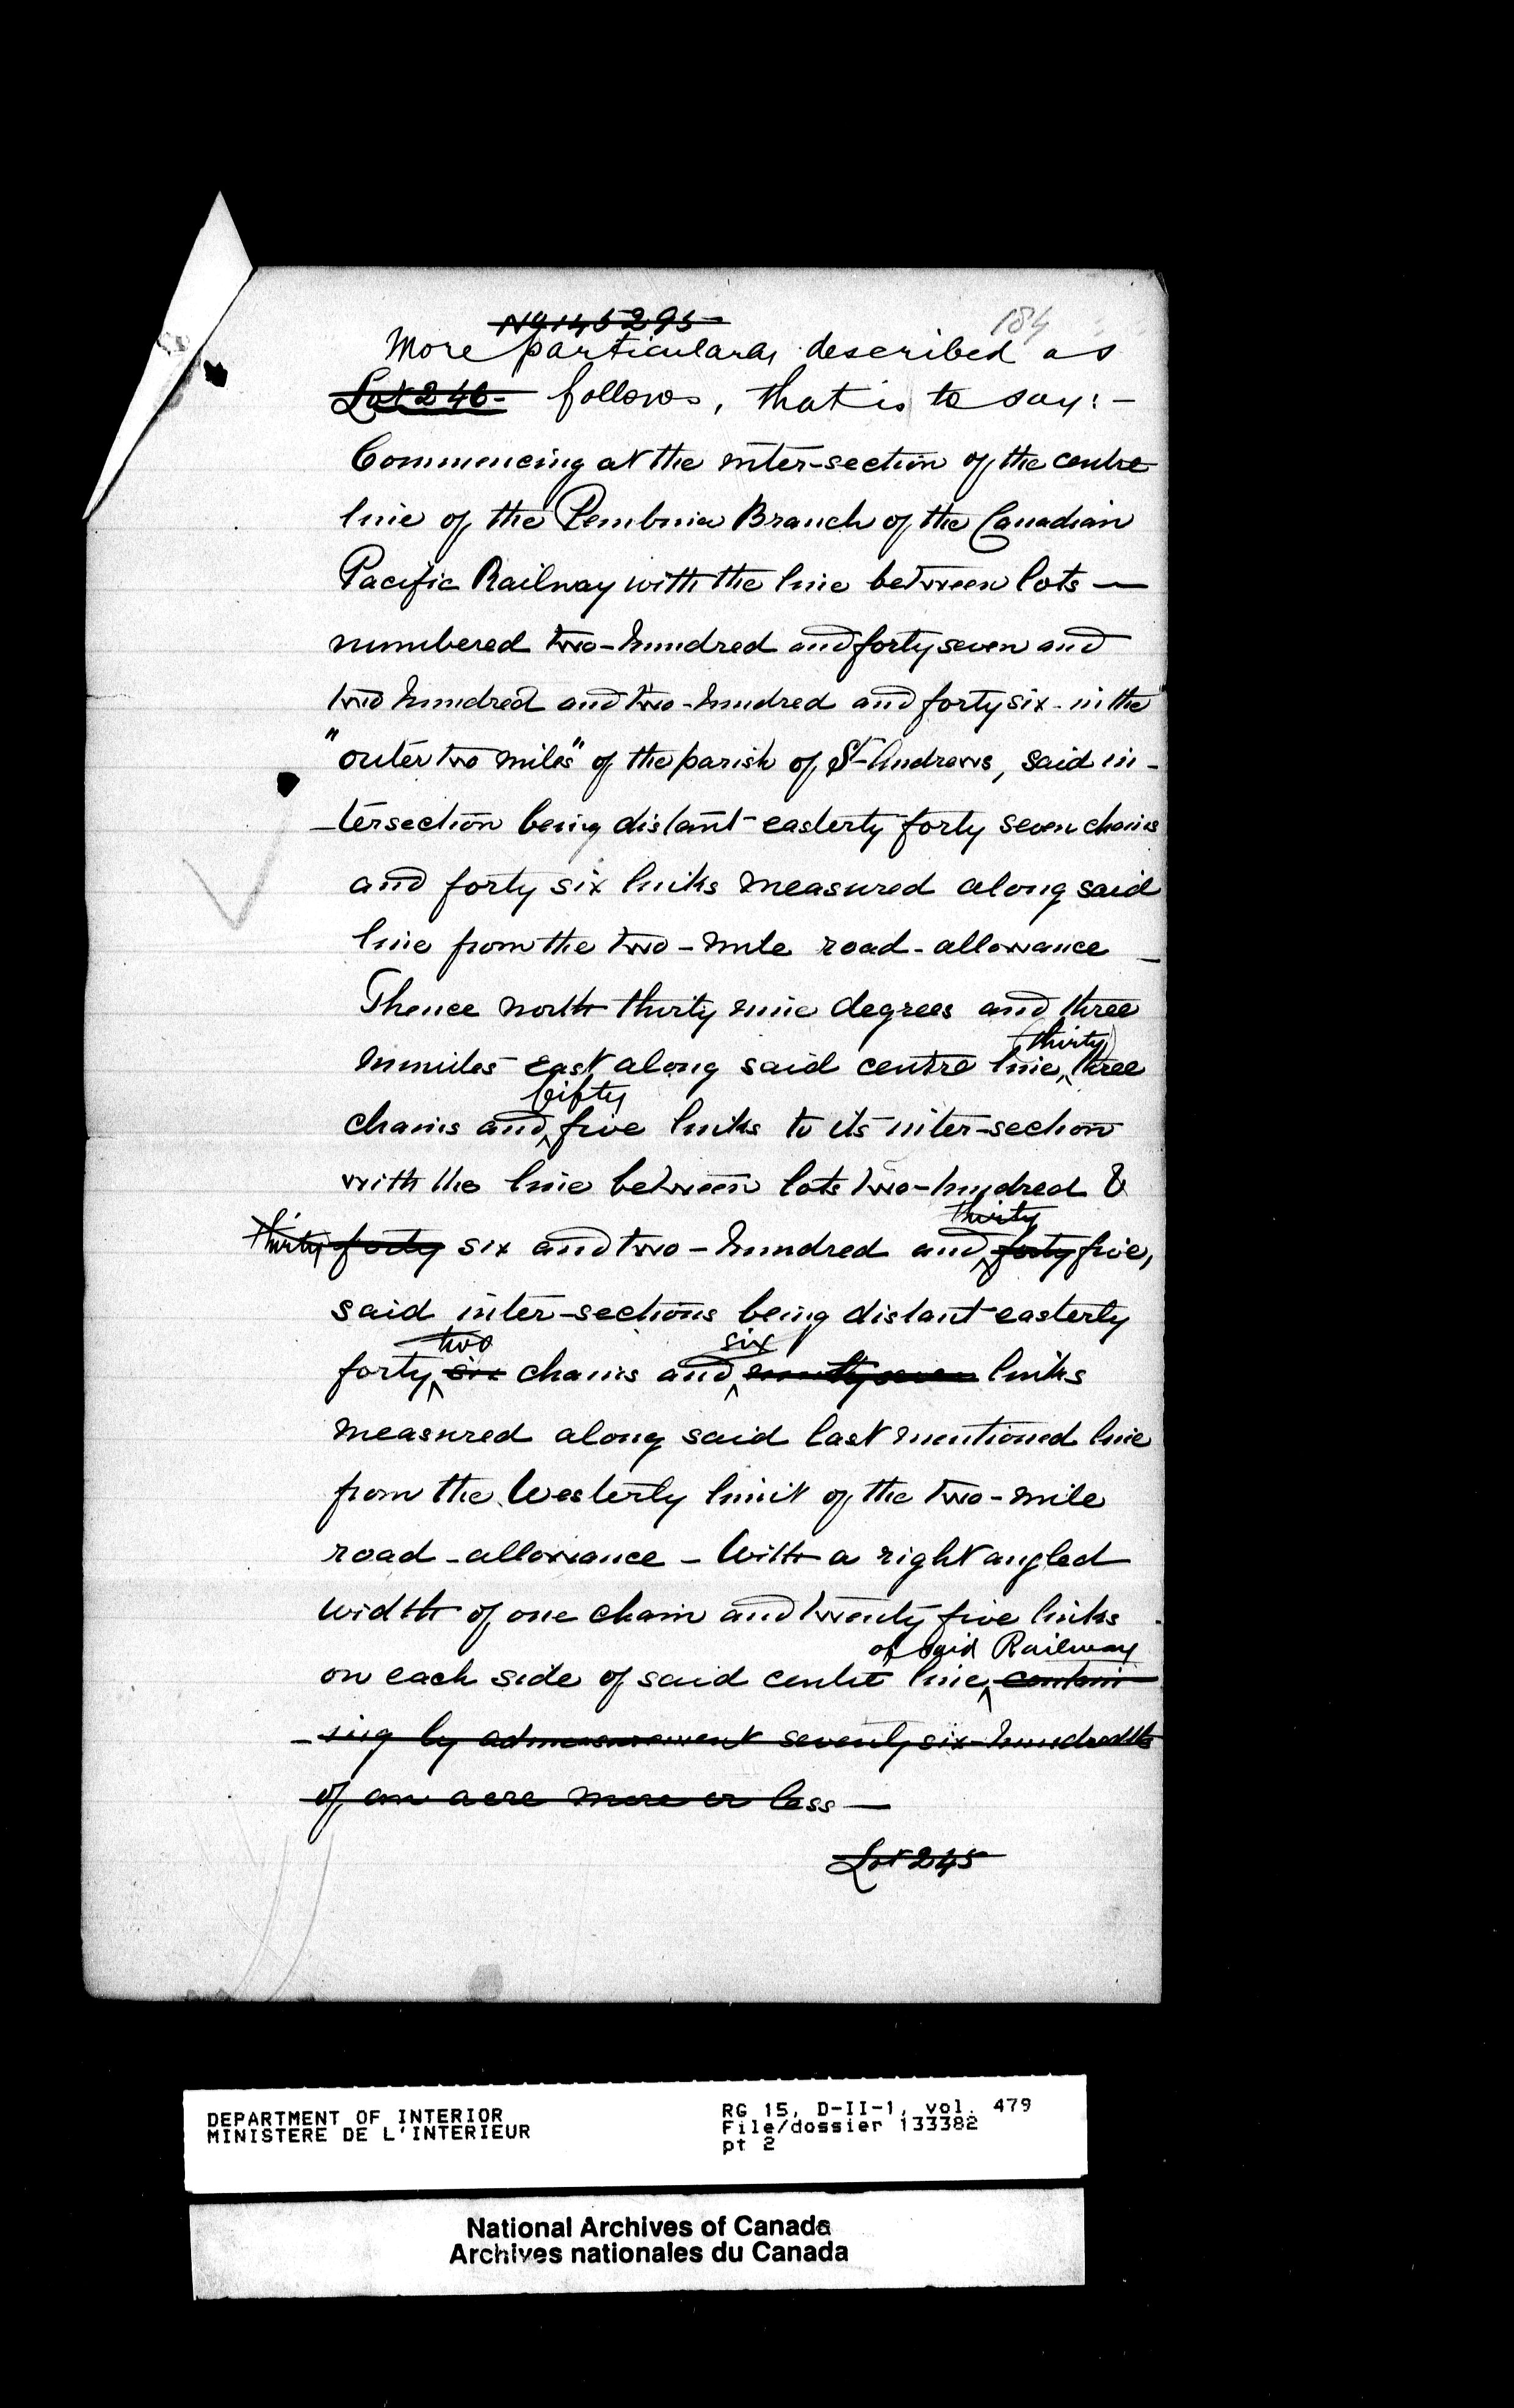 No 145295
184
More particularly described as
Lot 246- follows, that is to say:-
Commencing at the inter-section of the centre
line of the Pembina Branch of the Canadian
Pacific Railway with the line between lots —
numbered two-hundred and forty seven and
two hundred and two-hundred and forty six - in the
"outer two miles" of the parish of St Andrews, said in-
-tersection being distant easterly forty seven chains
and forty six links measured along said
line from the two-mile road-allowance -
Thence north thirty nine degrees and three
(thirty)
minutes east along said centre line, three
fifty
chains and five links to its inter-section
with the line between lots two-hundred &
thirty
thirty forty six and two-hundred and forty five,
said inter-sections being distant easterly
two six
forty six chains and seven links
measured along said last mentioned line
from the Westerly limit of the two-mile
road-allowance - With a right angled
width of one chain and twenty five links
of said Railway
on each side of said centre line, contain-
-ing by admeasurement seventy six-hundredths
of an acre more or less —
Lot 245
DEPARTMENT OF INTERIOR
MINISTERE DE L'INTERIEUR
RG 15, D-II-1, vol. 479
File/dossier 133382
pt 2
National Archives of Canada
Archives nationales du Canada